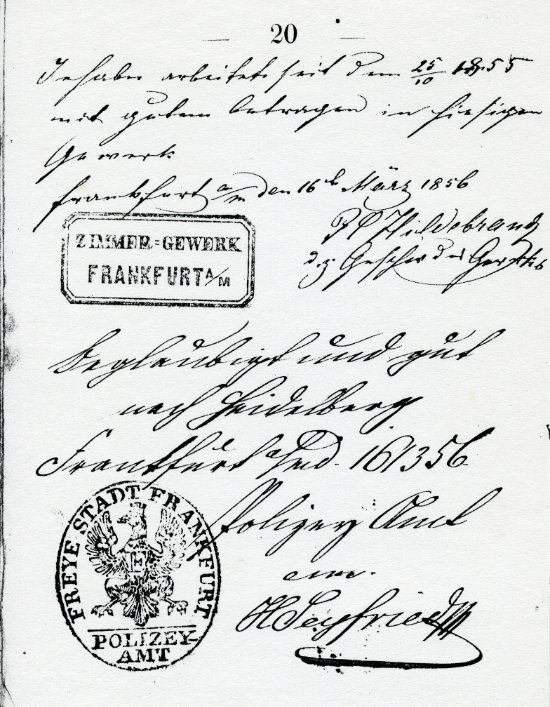 20
Inhaber arbeitete seit dem 25/10 1855
mit gutem Betragen in hiesigen
Gewerk
Frankfurt a/m den 16t März 1856
Hildebrand
d. z. Geschw. des Gewerks
ZIMMER=GEWERK
FRANKFURT A/M
Beglaubigt und gut
nach Heidelberg
Frankfurt d. 16/3 56
Polizey Amt
FREYE STADT FRANKFURT
POLIZEY-
AMT
Seyfried